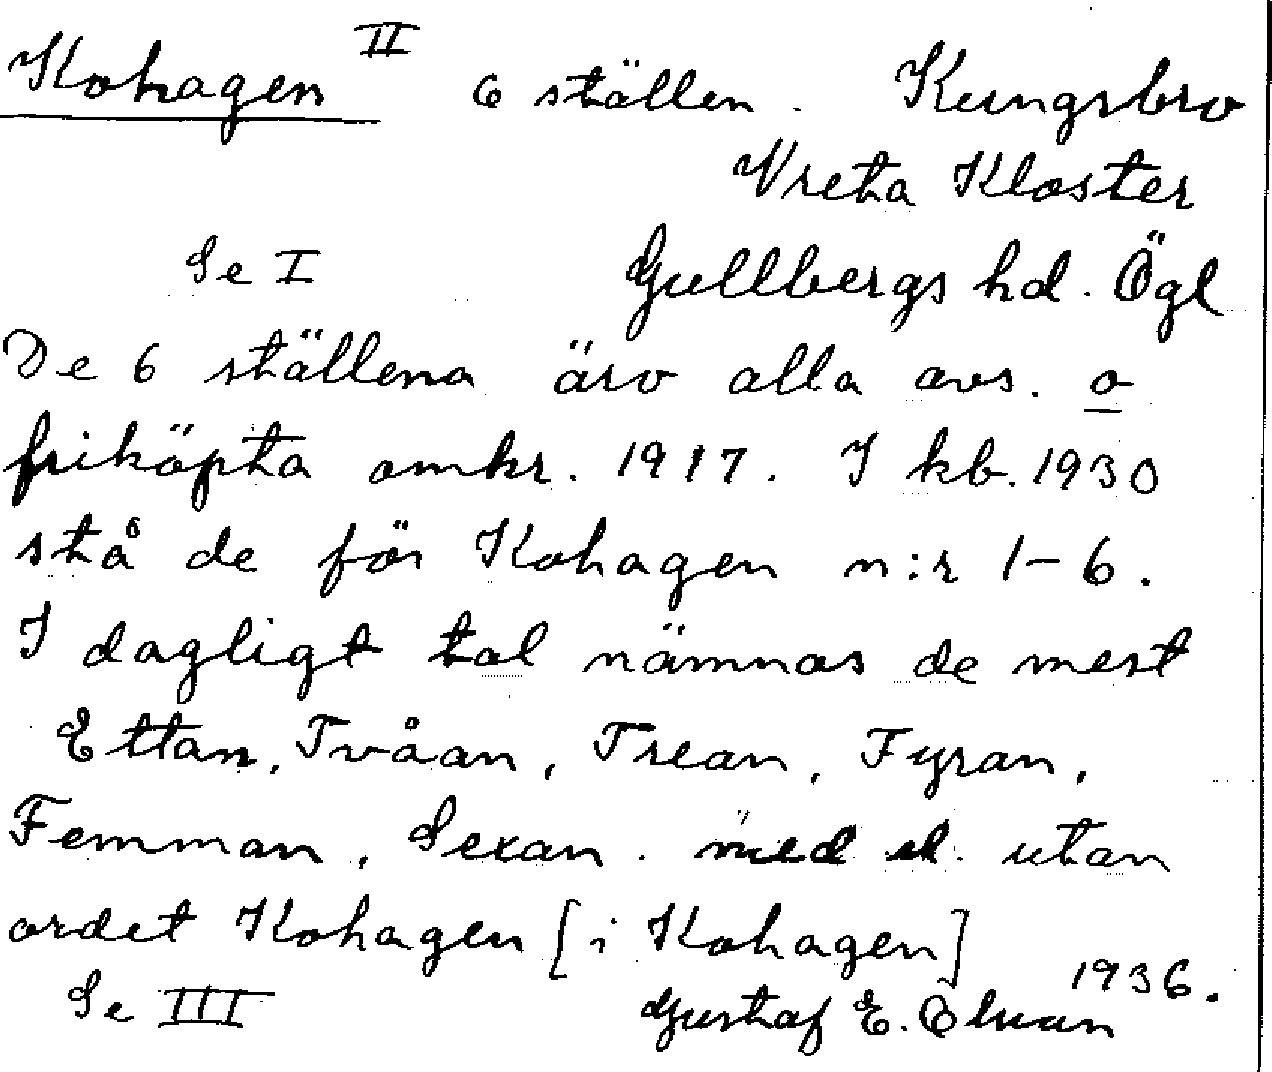 Kohagen II 6 ställen. Kungsbro
Vreta Kloster
Se I Gullbergs hd. Ögl
De 6 ställena äro alla avs. o
friköpta omkr. 1917. I kb. 1930
stå de för Kohagen n:r 1-6.
I dagligt tal nämnas de mest
Ettan, Tvåan, Trean, Fyran,
Femman, Sexan. med el. utan
ordet Kohagen [i Kohagen]
Se III Gustaf E. 1936.